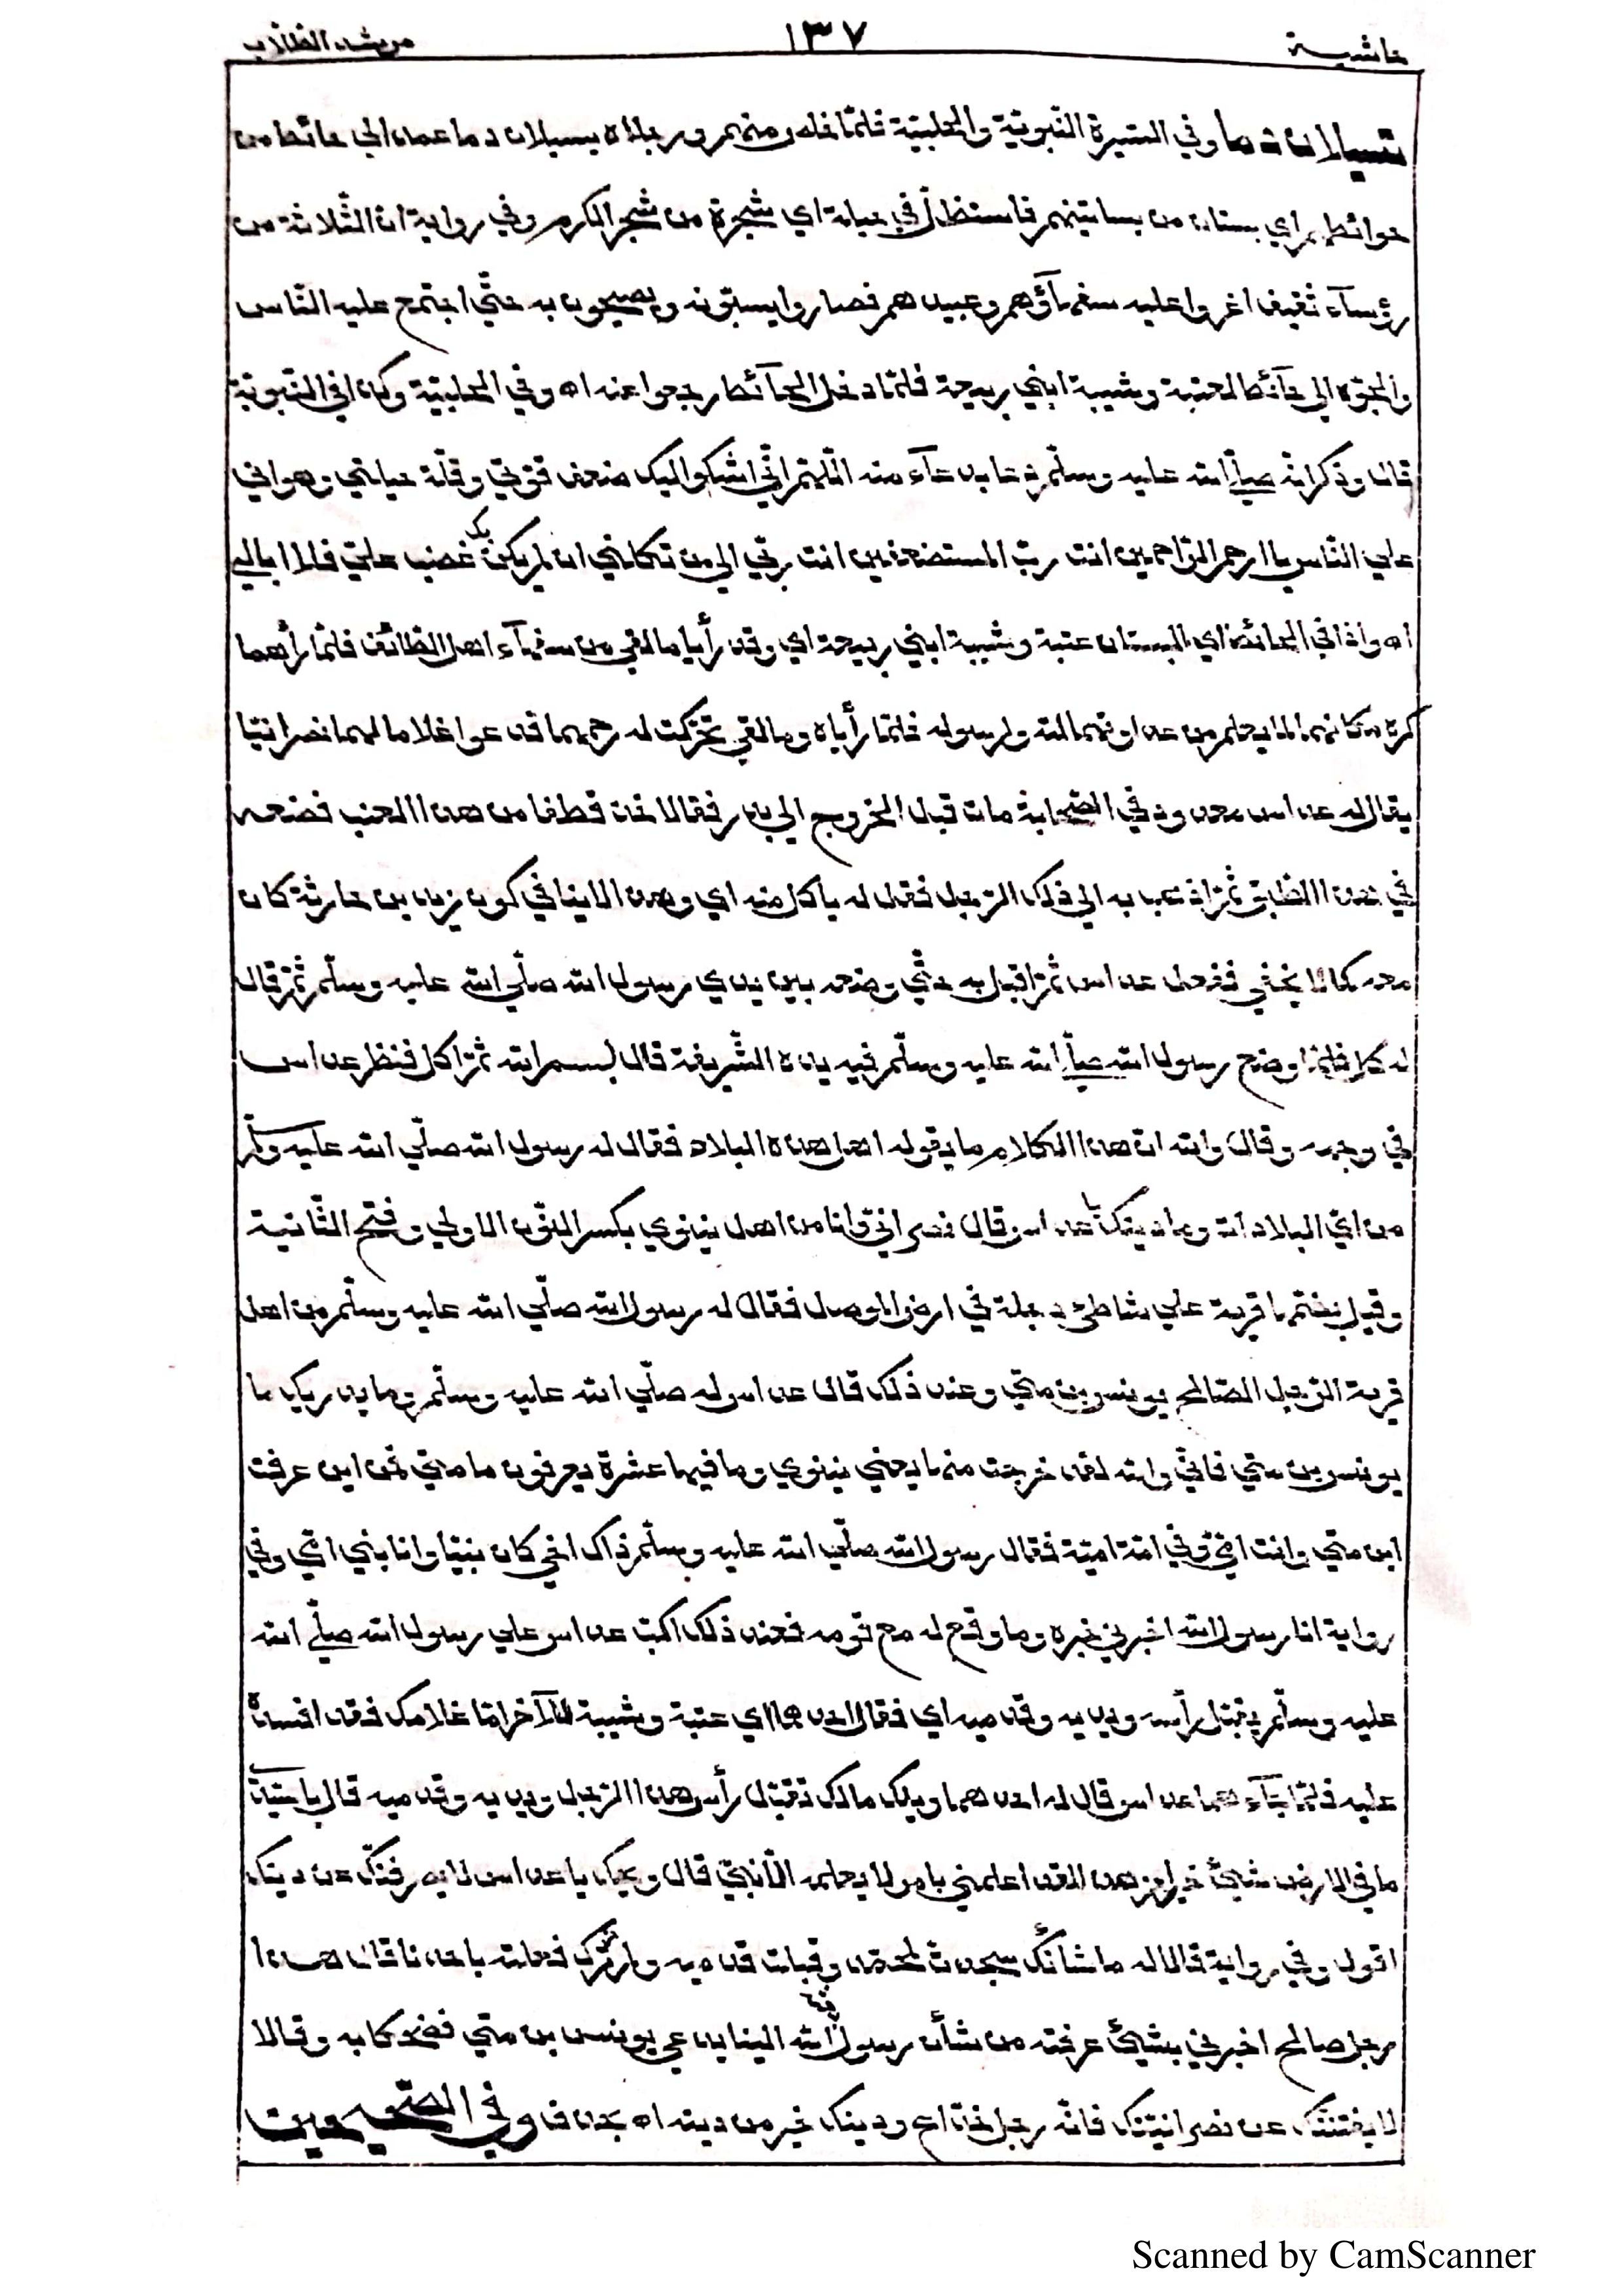 حاشية ١٣٧ مرشد الطلاب
تسيلان دما وفي السيرة النبوية والحلبية فلما خلص منهم ورجلاه يسيلان دما عمد الي حائط من
حوائطهم اي بستان من بساتينهم فاستظل في حبلة اي شجرة من شجر الكرم وفي رواية ان الثلاثة من
رؤساء ثقيف اغروا عليه سفهاؤهم وعبيدهم فصاروا يسبونه ويصيحون به حتي اجتمع عليه الناس
والجؤه الي حائط لعتبة وشيبة ابني ربيعة فلما دخل الحائط رجعوا عنه اه وفي الحلبية وكذا في النبوية
قال وذكر انه صلي الله عليه وسلم دعا بدعاء منه اللهم اني اشكو اليك ضعف قوتي وقلة حيلتي وهواني
علي الناس يا ارحم الراحمين انت رب المستضعفين انت ربي الي من تكلني ان لم يكن بك غضب علي فلا ابالي
اه واذا في الحائط اي البستان عتبة وشيبة ابني ربيعة اي وقد رأيا ما لقي من سفهاء اهل الطائف فلما رأهما
كره مكانهما لما يعلم من عداوتهما لله ولرسوله فلما رأياه وما لقي تحركت له رحمهما فدعوا غلاما لهما نصرانيا
يقال له عداس معدود في الصحابة مات قبل الخروج الي بدر فقالا خذ قطفا من هذا العنب فضعه
في هذا الطبق ثم اذهب به الي ذلك الرجل فقل له يأكل منه اي وهذا لاينافي كون زيد بن حارثة كان
معه كما لا يخفي ففعل عداس ثم اقبل به حتي وضعه بين يدي رسول الله صلي الله عليه وسلم ثم قال
له كل فلما وضع رسول الله صلي الله عليه وسلم فيه يده الشريفة قال بسم الله ثم اكل فنظر عداس
في وجهه وقال والله ان هذا الكلام ما يقوله اهل هذه البلاد فقال له رسول الله صلي الله عليه وسلم
من اي البلاد انت وما دينك يا عداس قال نصراني وانا من اهل نينوي بكسر النون الاولي وفتح الثانية
وقيل بضمها قرية علي شاطئ دجلة في ارض الموصل فقال له رسول الله صلي الله عليه وسلم من اهل
قرية الرجل الصالح يونس بن متي وعند ذلك قال عداس له صلي الله عليه وسلم وما يدريك ما
يونس بن متي فاني والله لقد خرجت منها يعني نينوي وما فيها عشرة يعرفون ما متي فمن اين عرفت
ابن متي وانت امي وفي امة امية فقال رسول الله صلي الله عليه وسلم ذاك اخي كان نبيا وانا نبي امي وفي
رواية انا رسول الله اخبرني خبره وما وقع له مع قومه فعند ذلك اكب عداس علي رسول الله صلي الله
عليه وسلم يقبل رأسه ويديه وقدميه اي فقال احدهما اي عتبة وشيبة للآخر اما غلامك فقد افسده
عليه فلما جاءهما عداس قال له احدهما ويلك مالك تقبل رأس هذا الرجل ويديه وقدميه قال يا سيدي
ما في الارض شيئ خير من هذا لقد اعلمني بامر لا يعلمه الا نبي قال ويحك يا عداس لا يصرفنك عن دينك
اقول وفي رواية قالا له ما شأنك سجدت لمحمد وقبلت قدميه ولم نرك فعلته باحدنا قال هذا
رجل صالح اخبرني بشيئ عرفته من شأن رسول بعثه الله الينا يدعي يونس بن متي فضحكا به وقالا
لا يفتننك عن نصرانيتك فانه رجل خداع ودينك خير من دينه اه بحذف وفي الصحيحين
Scanned by CamScanner